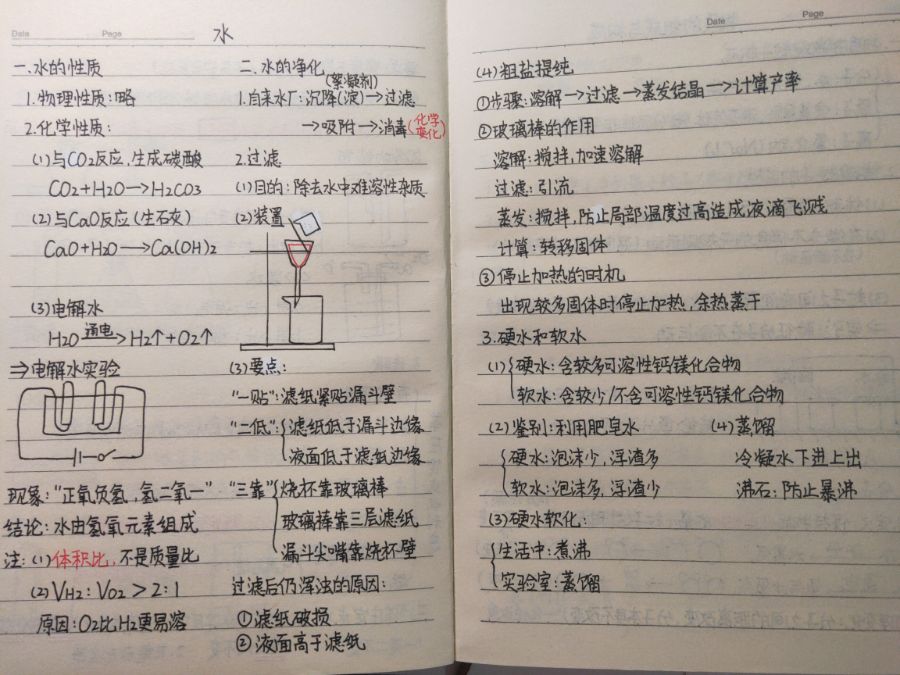 Date Page
水
一.水的性质
1.物理性质:略
2.化学性质:
(1)与CO2反应,生成碳酸
CO2+H2O→H2CO3
(2)与CaO反应(生石灰)
CaO+H2O→Ca(OH)2
(3)电解水
H2O 通电→ H2↑+O2↑
⇒电解水实验
现象:"正氧负氢,氢二氧一"
结论:水由氢氧元素组成
注:(1)体积比,不是质量比
(2)VH2:VO2>2:1
原因:O2比H2更易溶
二.水的净化
(絮凝剂)
1.自来水厂:沉降(淀)→过滤
→吸附→消毒(化学变化)
2.过滤
(1)目的:除去水中难溶性杂质
(2)装置
(3)要点:
"一贴":滤纸紧贴漏斗壁
"二低":滤纸低于漏斗边缘
液面低于滤纸边缘
"三靠"烧杯靠玻璃棒
玻璃棒靠三层滤纸
漏斗尖嘴靠烧杯壁
过滤后仍浑浊的原因:
①滤纸破损
②液面高于滤纸
Date Page
(4)粗盐提纯
①步骤:溶解→过滤→蒸发结晶→计算产率
②玻璃棒的作用
溶解:搅拌,加速溶解
过滤:引流
蒸发:搅拌,防止局部温度过高造成液滴飞溅
计算:转移固体
③停止加热的时机
出现较多固体时停止加热,余热蒸干
3.硬水和软水
(1)硬水:含较多可溶性钙镁化合物
软水:含较少/不含可溶性钙镁化合物
(2)鉴别:利用肥皂水
硬水:泡沫少,浮渣多
软水:泡沫多,浮渣少
(3)硬水软化:
生活中:煮沸
实验室:蒸馏
(4)蒸馏
冷凝水下进上出
沸石:防止暴沸